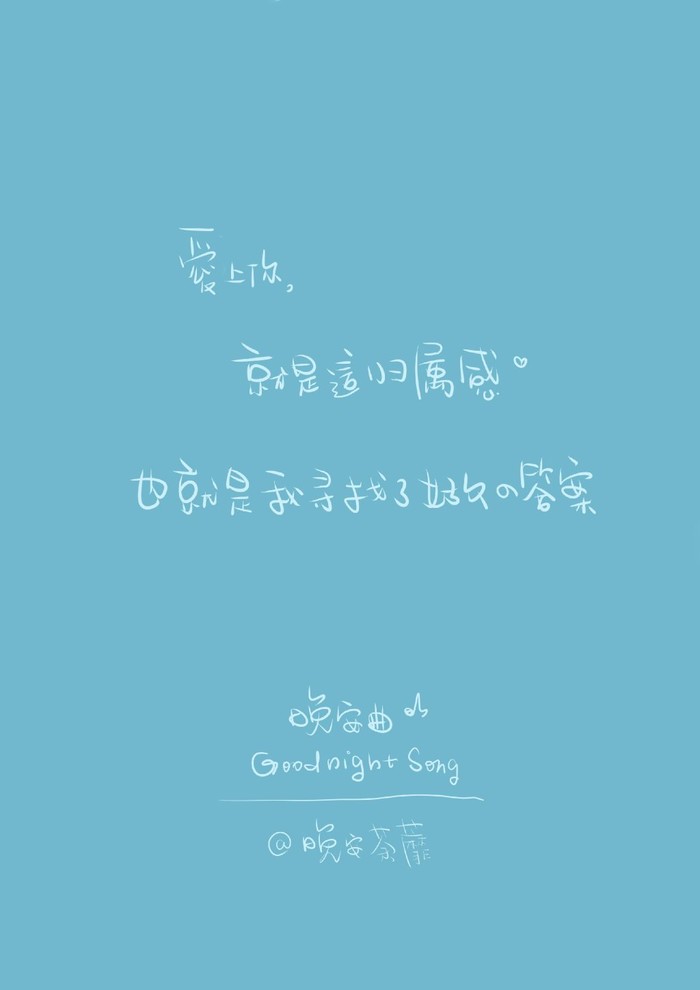 愛上你,
就是這归属感♡
也就是我寻找了好久の答案
晚安曲♪
Goodnight Song
@晚安荼蘼